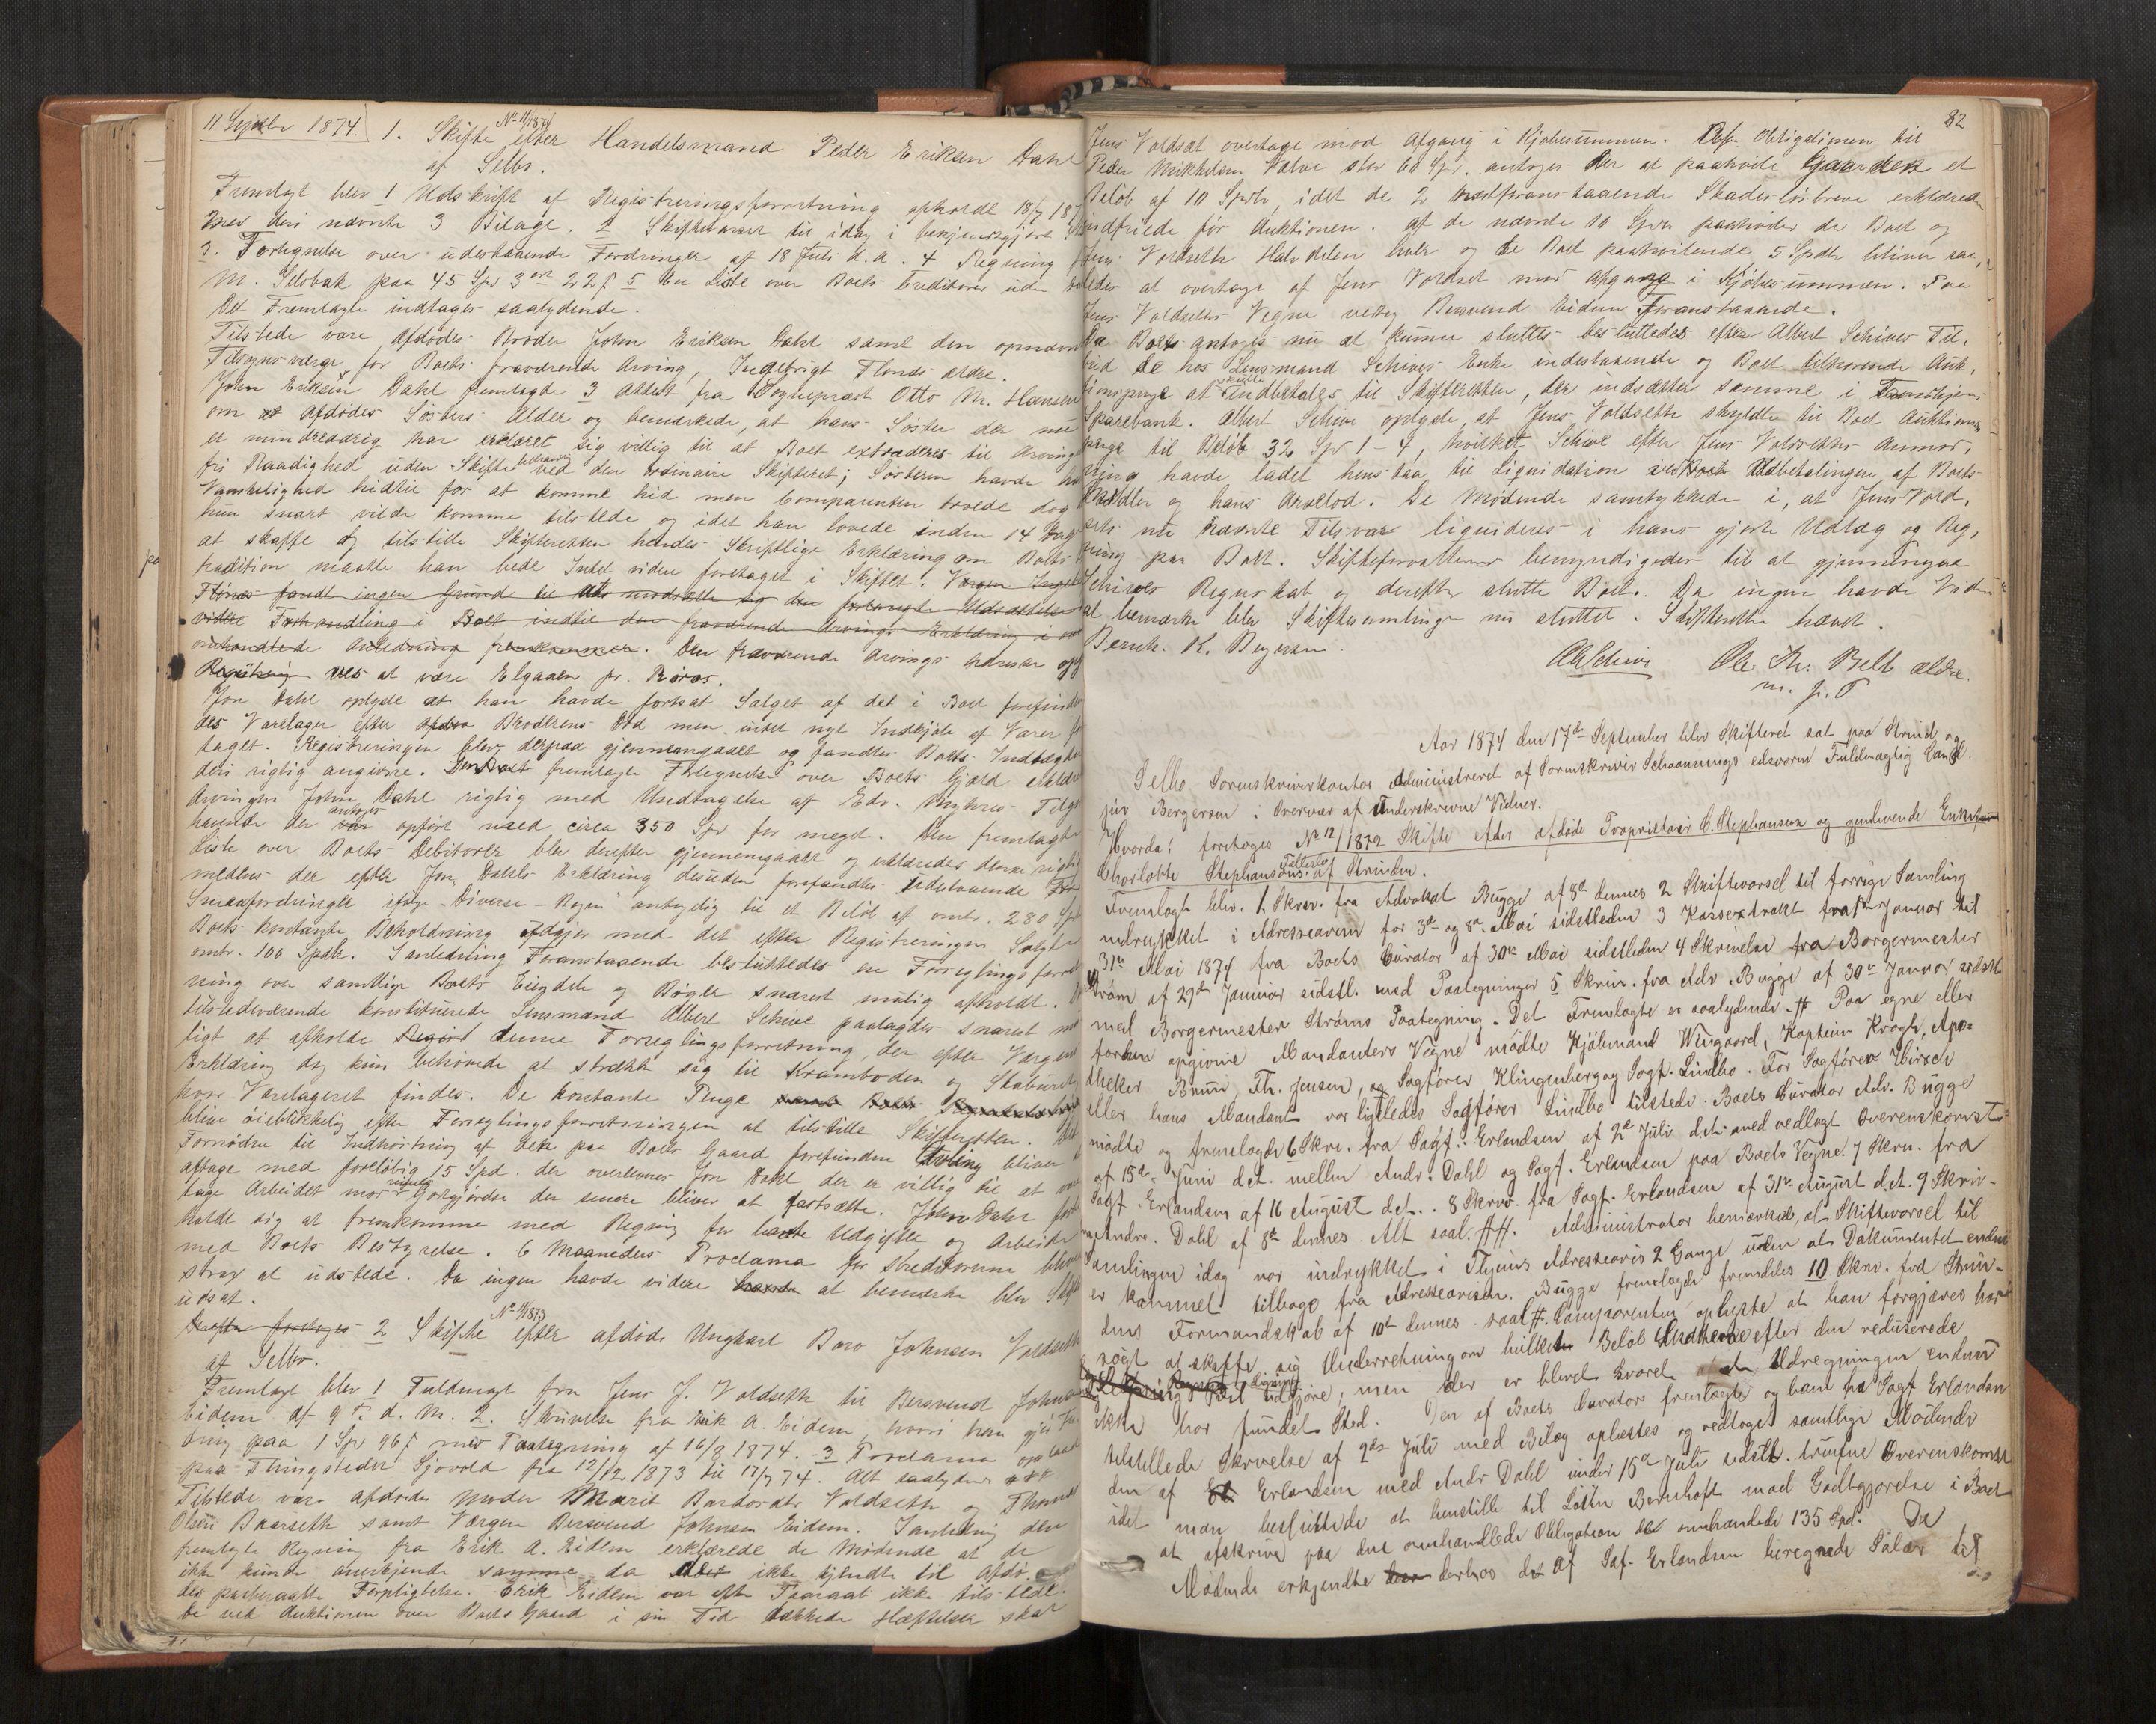 11 Septbr 1874. 1. Skifte No 11/1874 efter Handelsmand Peder Eriksen Dahl
af Selbo.
Fremlagt blev 1 Udskrift af Registreringsforretning afholdt 18/7 187
med deri nævnte 3 Bilage. 2 Skiftevarsel til idag i bekjendtgjort
3. Fortegnelse over udestaaende Fordringer af 18 Juli d.A. 4 Regning
M. Selsbak paa 45 Spd 3 ort 22 s 5 En Liste over Boets Creditorer uden
Det Fremlagte indtages saalydende.
Tilstede vare Afdødes Broder John Eriksen Dahl samt den opnævn
Tilsynsværge for Boets fraværende Arving, Ingebrigt Flonæs ældre.
John Eriksen Dahl fremlagde 3 Attest fra Sognepræst Otto M. Hansen
om at Afdødes Søsters Alder og bemærkede, at hans Søster der nu
er mindreaarig har erklæret sig villig til at Boet extraderes til Arving
fri Raadighed uden Skifte behandl ved den ordinaire Skifteret; Søsteren havde
Vanskelighed hidtil for at komme hid men Comparenten troede dog
hun snart vilde komme tilstede og idet han lovede inden 14 Dag
at skaffe og tilstille Skifteretten hendes Skriftlige Erklæring om Boets
tradition maatte han bede Intet videre foretaget i Skiftet. Værgen Inge
Flønæs fandt ingen Grund til at modsætte sig den forlangte Udsættelse
videre Forhandling i Boet indtil den fraværende Arvings Erklæring i
omhandlede Anledning fremkommer. Den fraværende Arvings Adresse opg
Registrering ves at være Elgaaen pr. Røros.
Jon Dahl oplyste at han havde fortsat Salget af det i Boet forefind
des Varelager efter Afdøde Broderens Død men intet nyt Indkjøb af Varer
taget. Registreringen blev derpaa gjennemgaaet og fandtes Boets Indtægter
deri rigtig angivne. Den fremlagte Fortegnelse over Boets Gjæld erklæ
Arvingen John Dahl rigtig med Undtagelse af Edv. Tilgo
havende der antages var opført med circa 350 Spd for meget. Den fremlagte
Liste over Boets Debitorer blev derefter gjennemgaaet og erklæredes denne rigtig
medens der efter Jon Dahls Erklæring desuden forefandtes udestaaende
Smaafordringer ifølge "Diverse-Bogen" antagelig til et Beløb af omtr. 280 Sp
Boets kontante Beholdning udgjør med det efter Registreringen Solgte
omtr. 100 Spdlr. I Anledning Foranstaaende besluttedes en Forseglingsforret
ning over samtlige Boets Eiendele og Bøger snarest mulig afholdt.
tilstedeværende konstituerede Lensmand Albert Schive paalagdes snarest mu
ligt at afholde Regist denne Forseglingsforretning, der efter Værgens
Erklæring dog kun behøvede at strække sig til Kramboden og Stabured
hvor Varelageret findes. De kontante Penge samt
blive øieblikkelig efter Forseglingsforretningen at tilstille Skifteretten.
Fornødne til Indhøstning af det paa Boets Gaard forefundne Avling bliver
aftage med foreløbig 15 Spd. der overleveres Jon Dahl der er villig til at
tage Arbeidet mod rimelig Godtgjørelse der senere bliver at fastsætte. John Dahl for
holdt sig at fremkomme med Regning for havte Udgifter og Arbeide
med Boets Bestyrelse. 6 Maaneders Proclama for Kreditorerne bliver
strax at udstede. Da ingen havde videre havde at bemærke blev Skif
udsat.
Derefter foretoges 2 Skifte No 11/1873 efter afdøde Ungkarl Baro Johnsen Voldseth
af Selbo.
Fremlagt blev 1 Fuldmagt fra Jens J. Voldseth til Bersvend Johnsen
Eidem af 9 d. M. 2. Skrivelse fra Erik A. Eidem, hvori han gjør
dring paa 1 Spd 96 s med Paategning af 16/8 1874. 3 Proclama oplæst
paa Thingstedet Sjøvold fra 12/12 1873 til 17/7 74. Alt saalydende
Tilstede vare afdødes Moder Marit Bardosdtr Voldseth og Thomas
Olsen Baarseth samt Værgen Bersvend Johnsen Eidem. I Anledning den
fremlagte Regning fra Erik A. Eidem erklærede de Mødende at de
ikke kunde anerkjende samme da de ikke kjendte til Afdø
des paaberaabte Forpligtelse. Erik Eidem var efter Paaraab ikke tilstede.
De ved Auktionen over Boets Gaard i sin Tid dækkede Hæftelser skal
82
Jens Voldset overtage mod Afgang i Kjøbesummen. Af Obligationen til
Peder Mikkelsen Balve stor 60 Spd. antages der at paahvile Gaarden et
Beløb af 10 Spdlr, idet de 2 næstforanstaaende Skadesløsbreve erklæredes
indfriede før Auktionen. Af de nævnte 10 Spdlr paahviler de Boet og
Jens Voldseth Halvdelen hver og de Boet paahvilende 5 Spdlr bliver saa
ledes at overtage af Jens Voldset mod Afgang i Kjøbesummen. Paa
Jens Voldseths Vegne vedtog Bersvend Eidem Foranstaaende.
Da Boet antages nu at kunne sluttes besluttedes efter Albert Schives Til,
bud de hos Lensmand Schives Enke indestaaende og Boet tilhørende Auk,
tionspenge at skulle indbetales til Skifteretten, der indsætter samme i Trondhjems
Sparebank. Albert Schive oplyste, at Jens Voldseth skyldte til Boet Auktions
penge til Beløb 32 Spd 1 - 4, hvilket Schive efter Jens Voldseths Anmod,
ning havde ladet henstaa til Liquidation ved Udbetalingen af Boets
Midler og hans Arvelod. De Mødende samtykkede i, at Jens Vold,
sets nu nævnte Tilsvar liquideres i hans gjorte Udlæg og Reg,
ning paa Boet. Skifteforvalteren bemyndigedes til at gjennemgaa
Schives Regnskab og derefter slutte Boet. Da ingen havde Videre
at bemærke blev Skiftesamlingen nu sluttet. Skifteretten hævet.
Bernh. K. Bergersen
A Schive Ole Th. Bell ældre.
m. p. P
Aar 1874 den 17de September blev Skifteret sat paa Strind og
Selbo Sorenskriverkontor Administreret af Sorenskriver Schaannings edsvorne Fuldmægtig Cand.
jur Bergersen i Overvær af Underskrevne Vidner.
Hvorda: foretoges No 12/1872 Skifte efter afdøde Proprietair C. Stephansen og gjenlevende Enkefrue
Charlotte Stephansens Fællesbo af Strinden.
Fremlagt blev. 1. Skriv. fra Advokat Bugge af 8de dennes 2 Skiftevarsel til forrige Samling
indrykket i Adresseavisen for 3de og 8de Mai sidstleden 3 Kasseextrakt fra 1ste Januar til
31te Mai 1874 fra Boets Curator af 30te Mai sidstleden 4 Skrivelse fra Borgermester
Strøm af 29de Januar sidstl. med Paategninger 5 Skriv. fra Adv Bugge af 30te Januar sidstl.
med Borgermester Strøms Paategning. Det Fremlagte er saalydende # Paa egne eller
forhen opgivne Mandanters Vegne mødte Kjøbmand Wingaard, Kaptein Krogh, Apo=
theker Bruun Fh. Jensen, og Sagfører Klingenberg og Sagf. Lindbo. For Sagfører Hirsch
eller hans Mandant var ligeledes Sagfører Lindbo tilstede. Boets Curator Adv. Bugge
mødte og fremlagde 6 Skriv. fra Sagf. Erlandsen af 2de Juli d.A. med vedlagt Overenskomst
af 15de Juni d.A. mellem Andr. Dahl og Sagf. Erlandsen paa Boets Vegne. 7 Skriv. fra
Sagf. Erlandsen af 16 August d.A. 8 Skriv. fra Sagf. Erlandsen af 31te August d.A. 9 Skriv-
Andr. Dahl af 8de dennes. Alt saal. ##. Administrator bemærkede, at Skiftevarsel til
Samlingen idag var indrykket i Thjems Adresseavis 2 Gange uden at Dokumentet endnu
er kommet tilbage fra Adresseavisen. Bugge fremlagde fremdeles 10 Skriv. fra Strin-
dens Formandskab af 10de dennes saal #. Comparenten oplyste at han forgjæves havde
søgt at skaffe sig Underretning om hvilket Beløb efter den reduserede
Ligning vil udgjøre, men der er blevet svaret at Udregningen endnu
ikke har fundet Sted. Den af Boets Curator fremlagte og ham fra Sagf Erlandsen
tilstillede Skrivelse af 2de Juli med Bilag oplæstes og vedtoges samtlige Mødende
den af Erlandsen med Andr Dahl under 15de Juli sidstl. trufne Overenskomst
idet man besluttede at henstille til Løitn Bernhoft mod Godtgjørelse i Boet
at afskrive paa den omhandlede Obligation det omhandlede 135 Spd. De
Mødende erkjendte derhos det af Sagf. Erlandsen beregnede Salær til